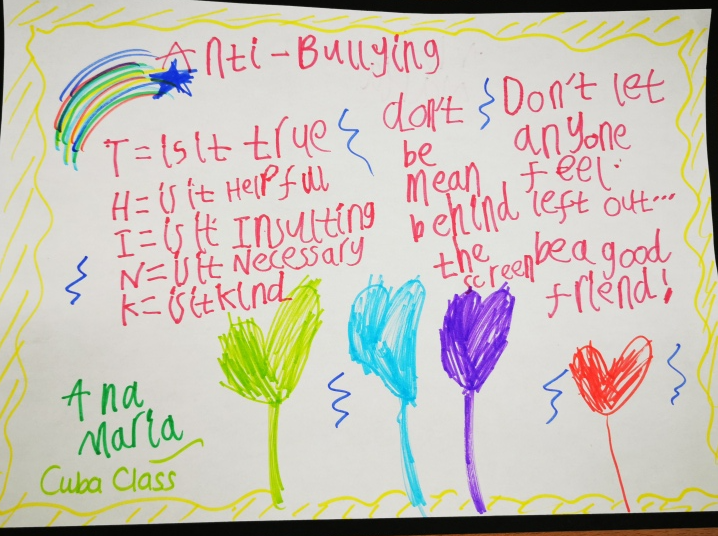 Anti-Bullying
T= is it true
H= is it Helpful
I= is it Insulting
N= is it Necessary
K= is it kind
don't
be
mean
behind
the
screen
Don't let
anyone
feel
left out...
be a good
friend!
Ana
Maria
Cuba Class